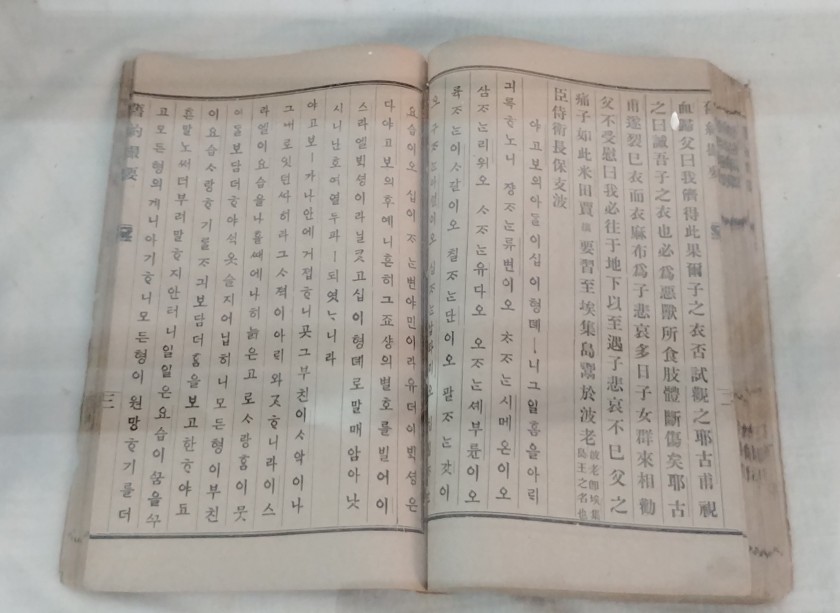 血歸父曰我儕得此果爾子之衣否試觀之耶古甫視
之曰誠吾子之衣也必爲惡獸所食肢體斷傷矣耶古
甫遂裂已衣而衣麻布爲子悲哀多日子女群來相勸
父不受慰曰我必往于地下以至遇子悲哀不已父之
痛子如此米田賈 要習至埃集島鬻於波老 波老卽埃集島王之名也
臣侍衛長保支波
야고보의아들이십이형뎨ㅣ니그일홈을아ᄅᆡ
긔록ᄒᆞ노니 쟝ᄌᆞᄂᆞᆫ류번이오 ᄎᆞᄌᆞᄂᆞᆫ시메온이오
삼ᄌᆞᄂᆞᆫ리위오 ᄉᆞᄌᆞᄂᆞᆫ유다오 오ᄌᆞᄂᆞᆫ셰부륜이오
륙ᄌᆞᄂᆞᆫ이ᄉᆞ갈이오 칠ᄌᆞᄂᆞᆫ단이오 팔ᄌᆞᄂᆞᆫ갓이
요습이오 십이ᄌᆞᄂᆞᆫ변야민이라유더이ᄇᆡᆨ셩은
다야고보의후예니흔히그죠샹의별호를빌어이
스라엘ᄇᆡᆨ셩이라닐ᄏᆞᆺ고십이형뎨로말매암아낫
시니난호여열두파ㅣ되엿ᄂᆞ니라
야고보ㅣ가나안에거졉ᄒᆞ니곳그부친이ᄉᆞ악이나
그네로잇던싸히라그ᄉᆞ젹이아ᄅᆡ와ᄀᆞᆺᄒᆞ니라이스
라엘이요습을나흘ᄯᅢ에나히늙은고로ᄉᆞ랑홈이뭇
아들보담더ᄒᆞ야ᄉᆡᆨ옷슬지어닙히니모든형이부친
이요습ᄉᆞ랑ᄒᆞ기를ᄌᆞ긔보담더홈을보고한ᄒᆞ야됴
흔말노ᄡᅥ더부러말ᄒᆞ지안터니일일은요습이ᄭᅮᆷ을ᄭᅮ
고모든형의게니야기ᄒᆞ니모든형이원망ᄒᆞ기를더
舊約撮要 三